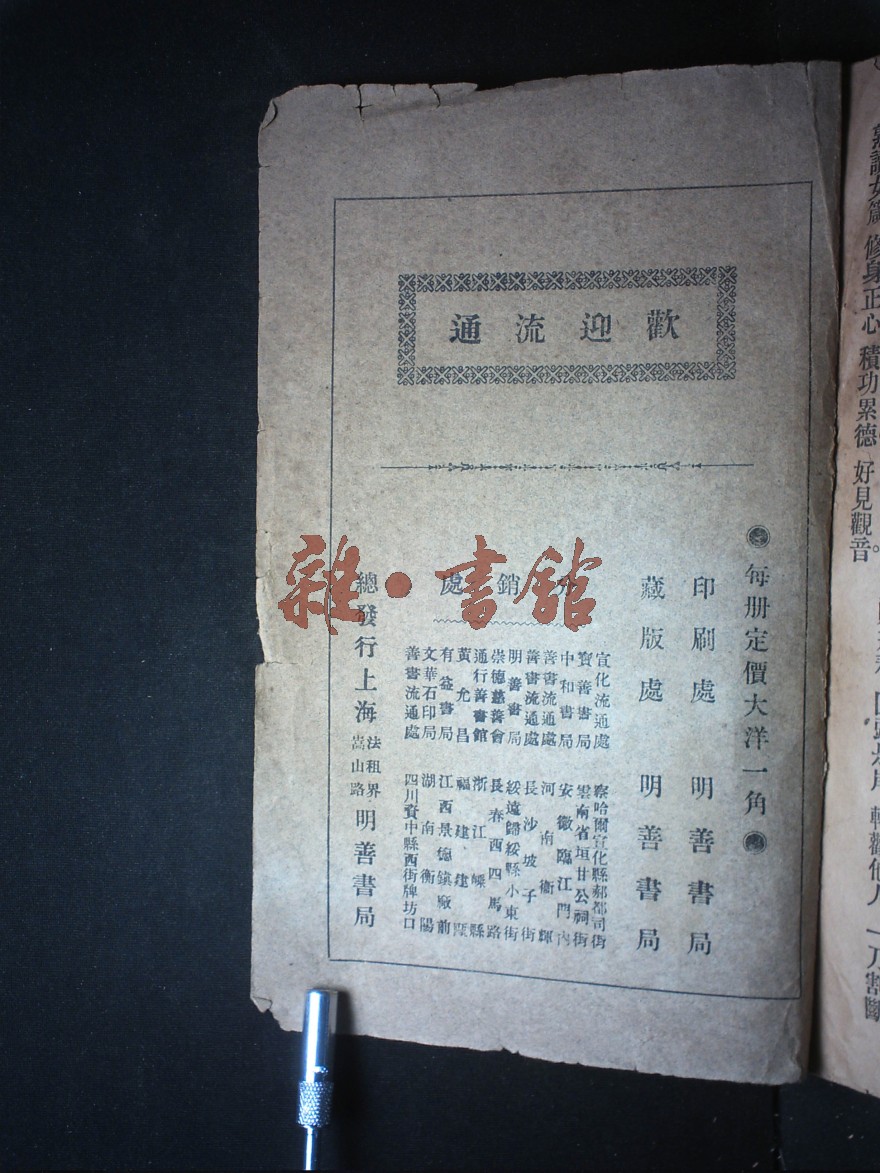 歡迎流通
每册定價大洋一角
印刷處 明善書局
藏版處 明善書局
分銷處
宣化流通處 察哈爾宣化縣郝都司街
寶善書局 雲南省垣甘公祠街
中和書局 安徽臨江門內
善書流通處 河南衞輝
善書流通處 長沙坡子街
明善書局 綏遠歸綏縣小東街
崇德慈善會 長春西四馬路
通行善書館 浙江嵊縣
黃允昌 福建建甌
有益書局 江西景德鎮廠前
文華石印局 湖南衡陽
善書流通處 四川資中縣西街牌坊口
總發行上海法租界嵩山路明善書局
雜·書館
修身正心 積功累德 好見觀音。
輕勸他人 一刀割斷